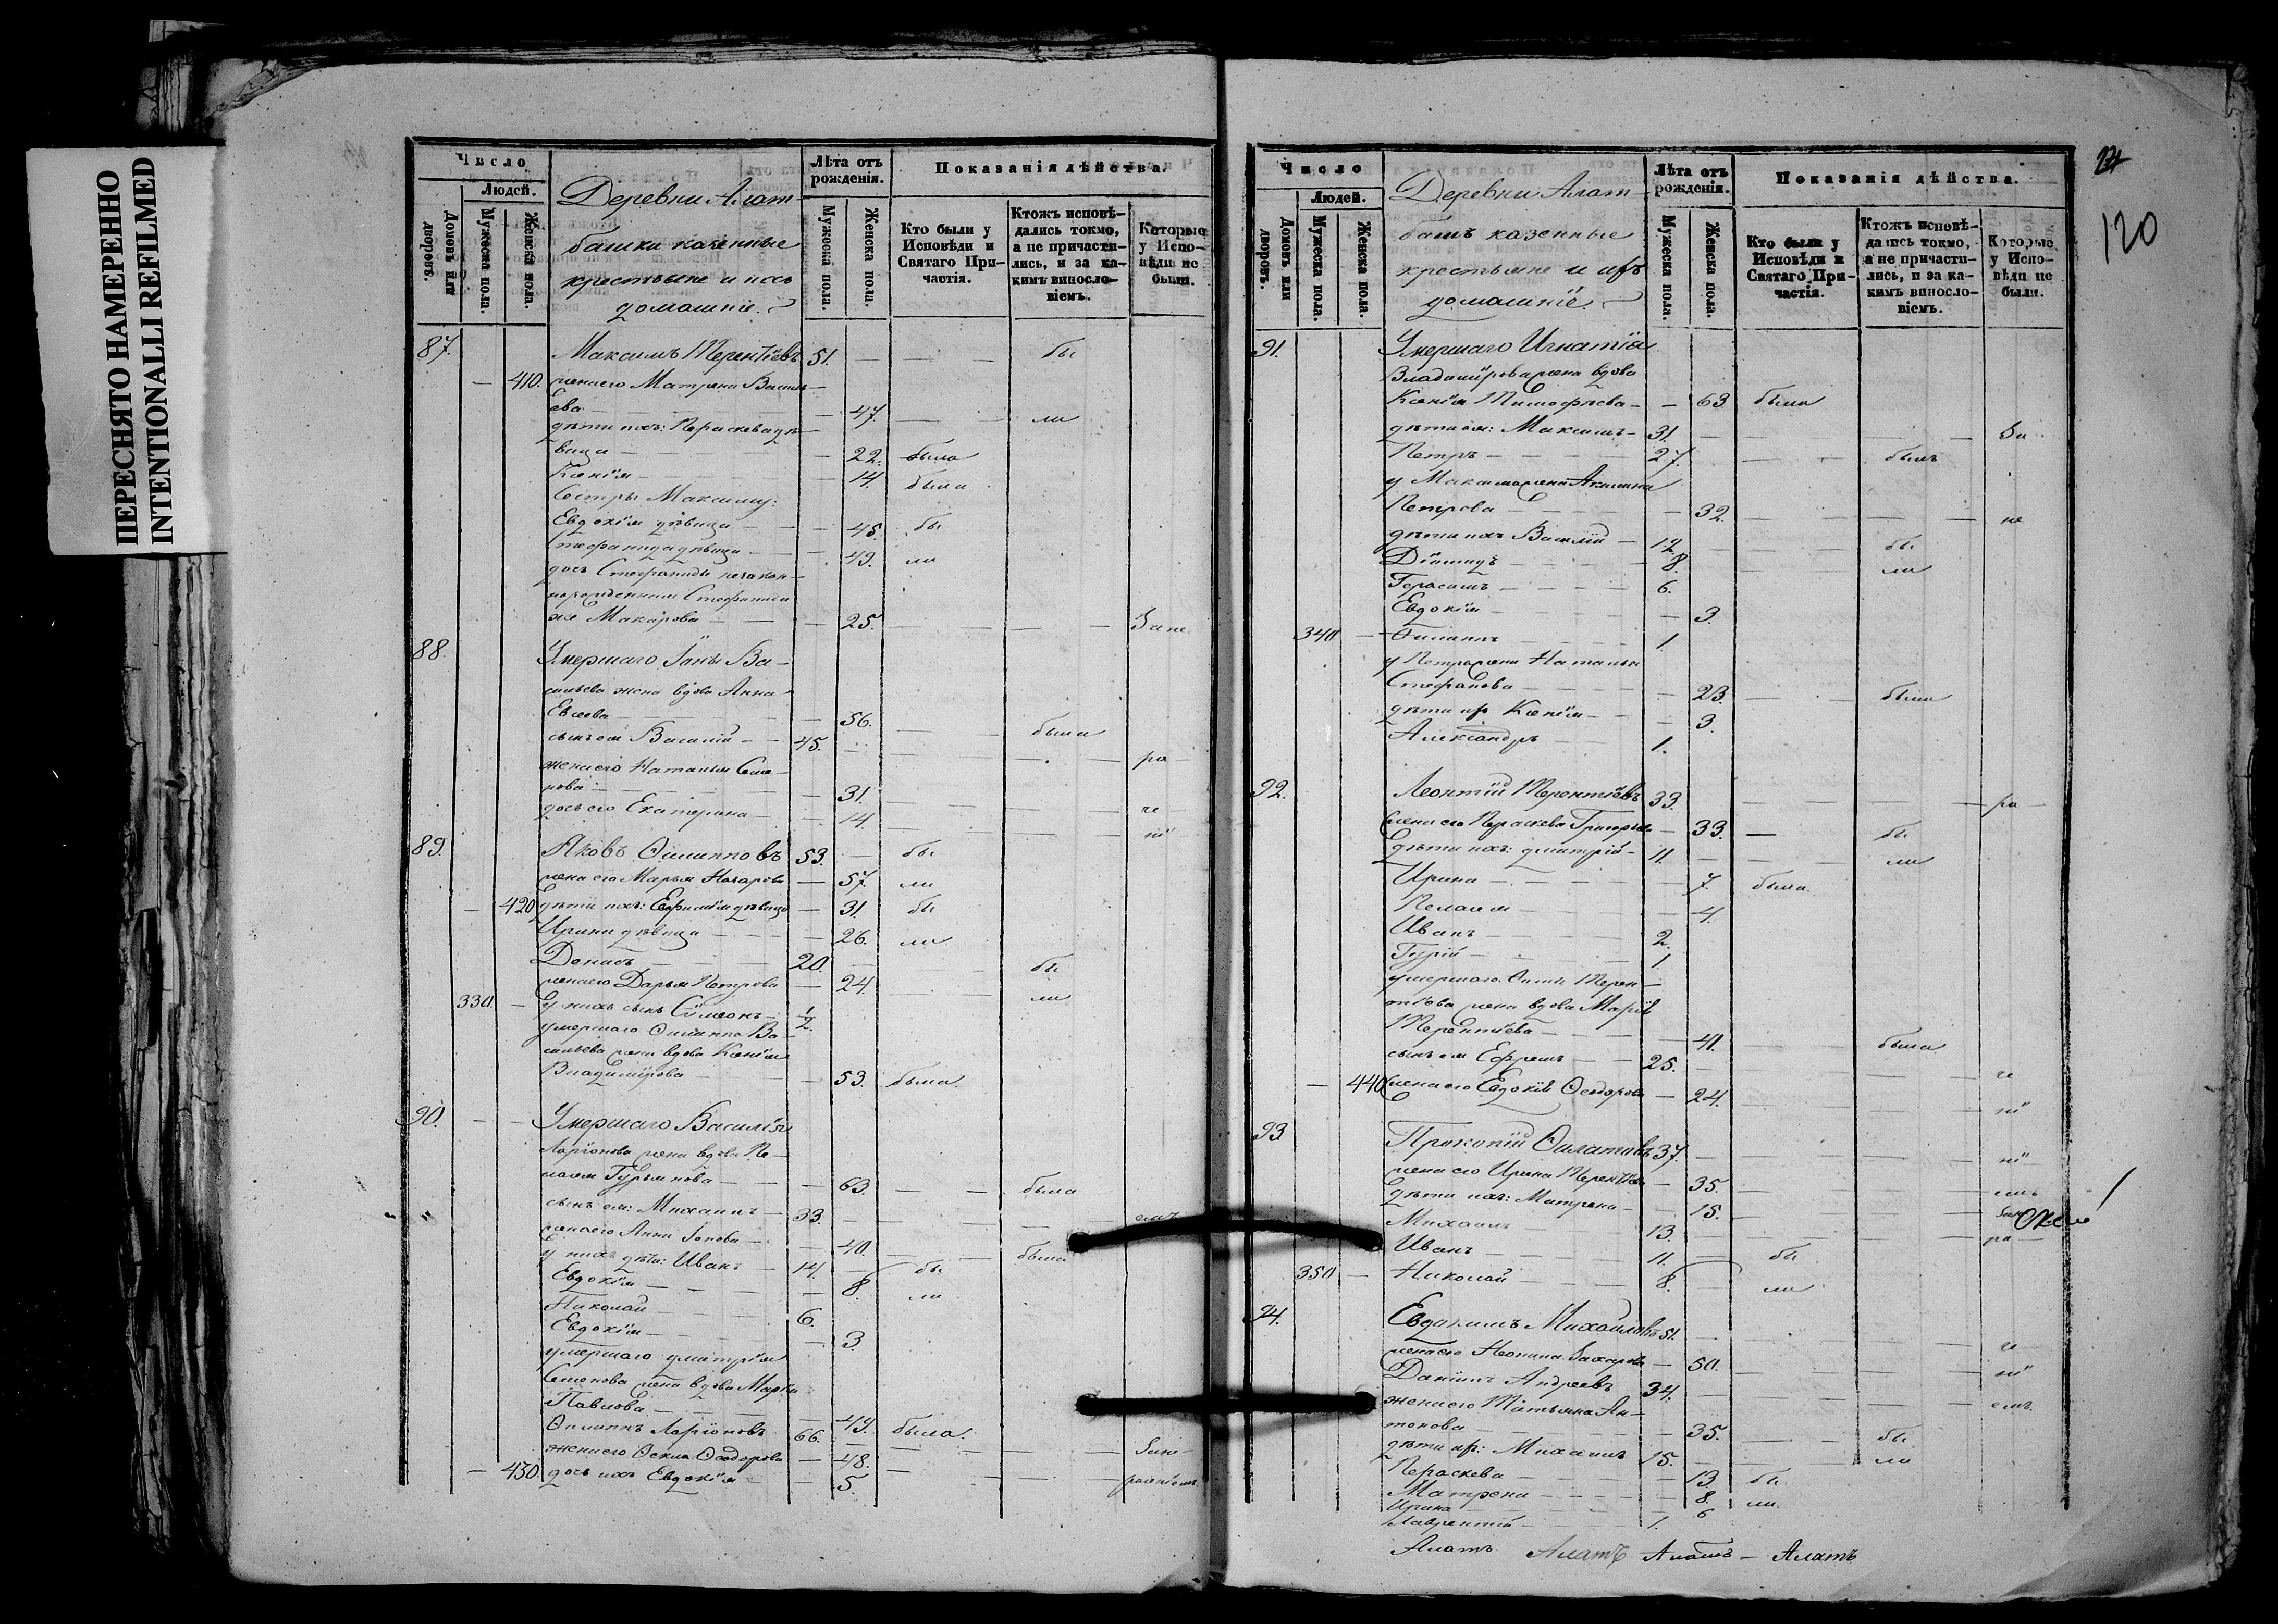 ПЕРЕСНЯТО НАМЕРЕННО
INTENTIONALLI REFILMED
Число
Людей.
Домовъ или дворовъ.
Мужеска пола.
Женска пола.
Деревни Алат-
башки казенные
крестьяне и ихъ
домашніе.
Лѣта отъ рожденія.
Мужеска пола.
Женска пола.
Показанія дѣйства.
Кто были у Исповѣди и Святаго При-частія.
Ктожъ исповѣ-дались токмо, а не причасти-лись, и за ка-кимъ винословіемъ.
Которые у Испо-вѣди не были.
87. Максимъ Терентіевъ 51. бы
410. жена его Матрена Василь-
ева 47. ли
дѣти ихъ: Параскева дѣ-
вица 22. была
Ксенія 14. была
Сестры Максиму:
Евдокія дѣвица 45. бы
Стефанида дѣвица 49. ли
дочь Стефаниды незакон-
норожденная Стефанида
же Макарова 25. За не
88. Умершаго Іоны Ва-
сильева жена вдова Анна
Евсеева 56. была
сынъ ея Василій 45. ра
жена его Наталья
рова 31. че
дочь его Екатерина 14. ні
89. Яковъ Филипповъ 53. бы
жена его Марья Назарова 57. ли
420 дѣти ихъ: Евфимія дѣвица 31. бы
Ирина дѣвица 26. ли
Денисъ 20. бы
жена его Дарья Петрова 24. ли
330. У нихъ сынъ Симеонъ 1/2.
умершаго Филиппа Ва-
сильева жена вдова Ксенія
Владимірова 53. была
90. Умершаго Василія
Ларіонова жена вдова Пе-
лагея Гурьянова 63. была
сынъ ея: Михаилъ 33. емъ
жена его Анна Іонова 40. была
У нихъ дѣти: Иванъ 14. бы
Евдокія 8. ли
Николай 6.
Евдокія 3.
умершаго Дмитрія
Семенова жена вдова Марія
Павлова 49. была.
Филиппъ Ларіоновъ 66. За не
жена его Фекла Феодорова 48.
430. дочь ихъ Евдокія 5.
120
Число
Людей.
Домовъ или дворовъ.
Мужеска пола.
Женска пола.
Деревни Алат-
башъ казенные
крестьяне и ихъ
домашніе.
Лѣта отъ рожденія.
Мужеска пола.
Женска пола.
Показанія дѣйства.
Кто были у Исповѣди и Святаго При-частія.
Ктожъ исповѣ-дались токмо, а не причасти-лись, и за ка-кимъ винословіемъ.
Которые у Испо-вѣди не были.
91. Умершаго Игнатія
Владимірова жена вдова
Ксенія Тимофеева 63 была
дѣти ея: Максимъ 31. За
Петръ 27. былъ
у Максима жена Акилина
Петрова 32. не
дѣти ихъ Василій 12. бы
Діомидъ 8. ли
Герасимъ 6.
Евдокія 3.
340 Филиппъ 1
у Петра жена Наталья
Стефанова 23. была
дѣти ихъ Ксенія 3.
Александръ 1.
92. Леонтій Терентіевъ 33. ра
жена его Параскева Григорьева 33. бы
дѣти ихъ: Дмитрій 11. ли
Ирина 7. была.
Пелагея 4.
Иванъ 2.
Гурій 1.
умершаго Терен-
тіева жена вдова Марія
Терентіева 41. была
сынъ ея Ефремъ 25. че
440 жена его Евдокія Феодорова 24. ні
93 Прокопій Филатовъ 37. ні
жена его Ирина Терентіева 35. емъ
дѣти ихъ: Матрена 15.
Михаилъ 13. ра
Иванъ 11. бы
350 Николай 8. ли
94. Евдокимъ Михайловъ 51. че
жена его Неонила Захарова 50. ні
Даніилъ Андреевъ 34. емъ
жена его Татьяна Ан-
тонова 35. бы
дѣти ихъ: Михаилъ 15. ли
Параскева 13. бы
Матрена 8. ли.
Ирина 6
Лаврентій 1.
Алатъ Алатъ Алатъ – Алатъ